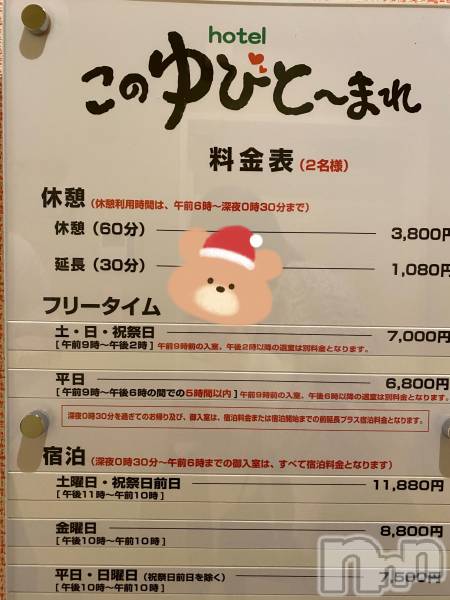 hotel
このゆびと〜まれ
料金表(2名様)
休憩(休憩利用時間は、午前6時〜深夜0時30分まで)
休憩(60分) 3,800円
延長(30分) 1,080円
フリータイム
土・日・祝祭日 7,000円
[午前9時〜午後2時] 午前9時前の入室、午後2時以降の退室は別料金となります。
平日 6,800円
[午前9時〜午後6時の間での5時間以内] 午前9時前の入室、午後6時以降の退室は別料金となります。
深夜0時30分を過ぎてのお帰り及び、御入室は、宿泊料金または宿泊開始までの前延長プラス宿泊料金となります。
宿泊(深夜0時30分〜午前6時までの御入室は、すべて宿泊料金となります)
土曜日・祝祭日前日 11,880円
[午後11時〜午前10時]
金曜日 8,800円
[午後10時〜午前10時]
平日・日曜日(祝祭日前日を除く) 7,500円
[午後10時〜午前10時]